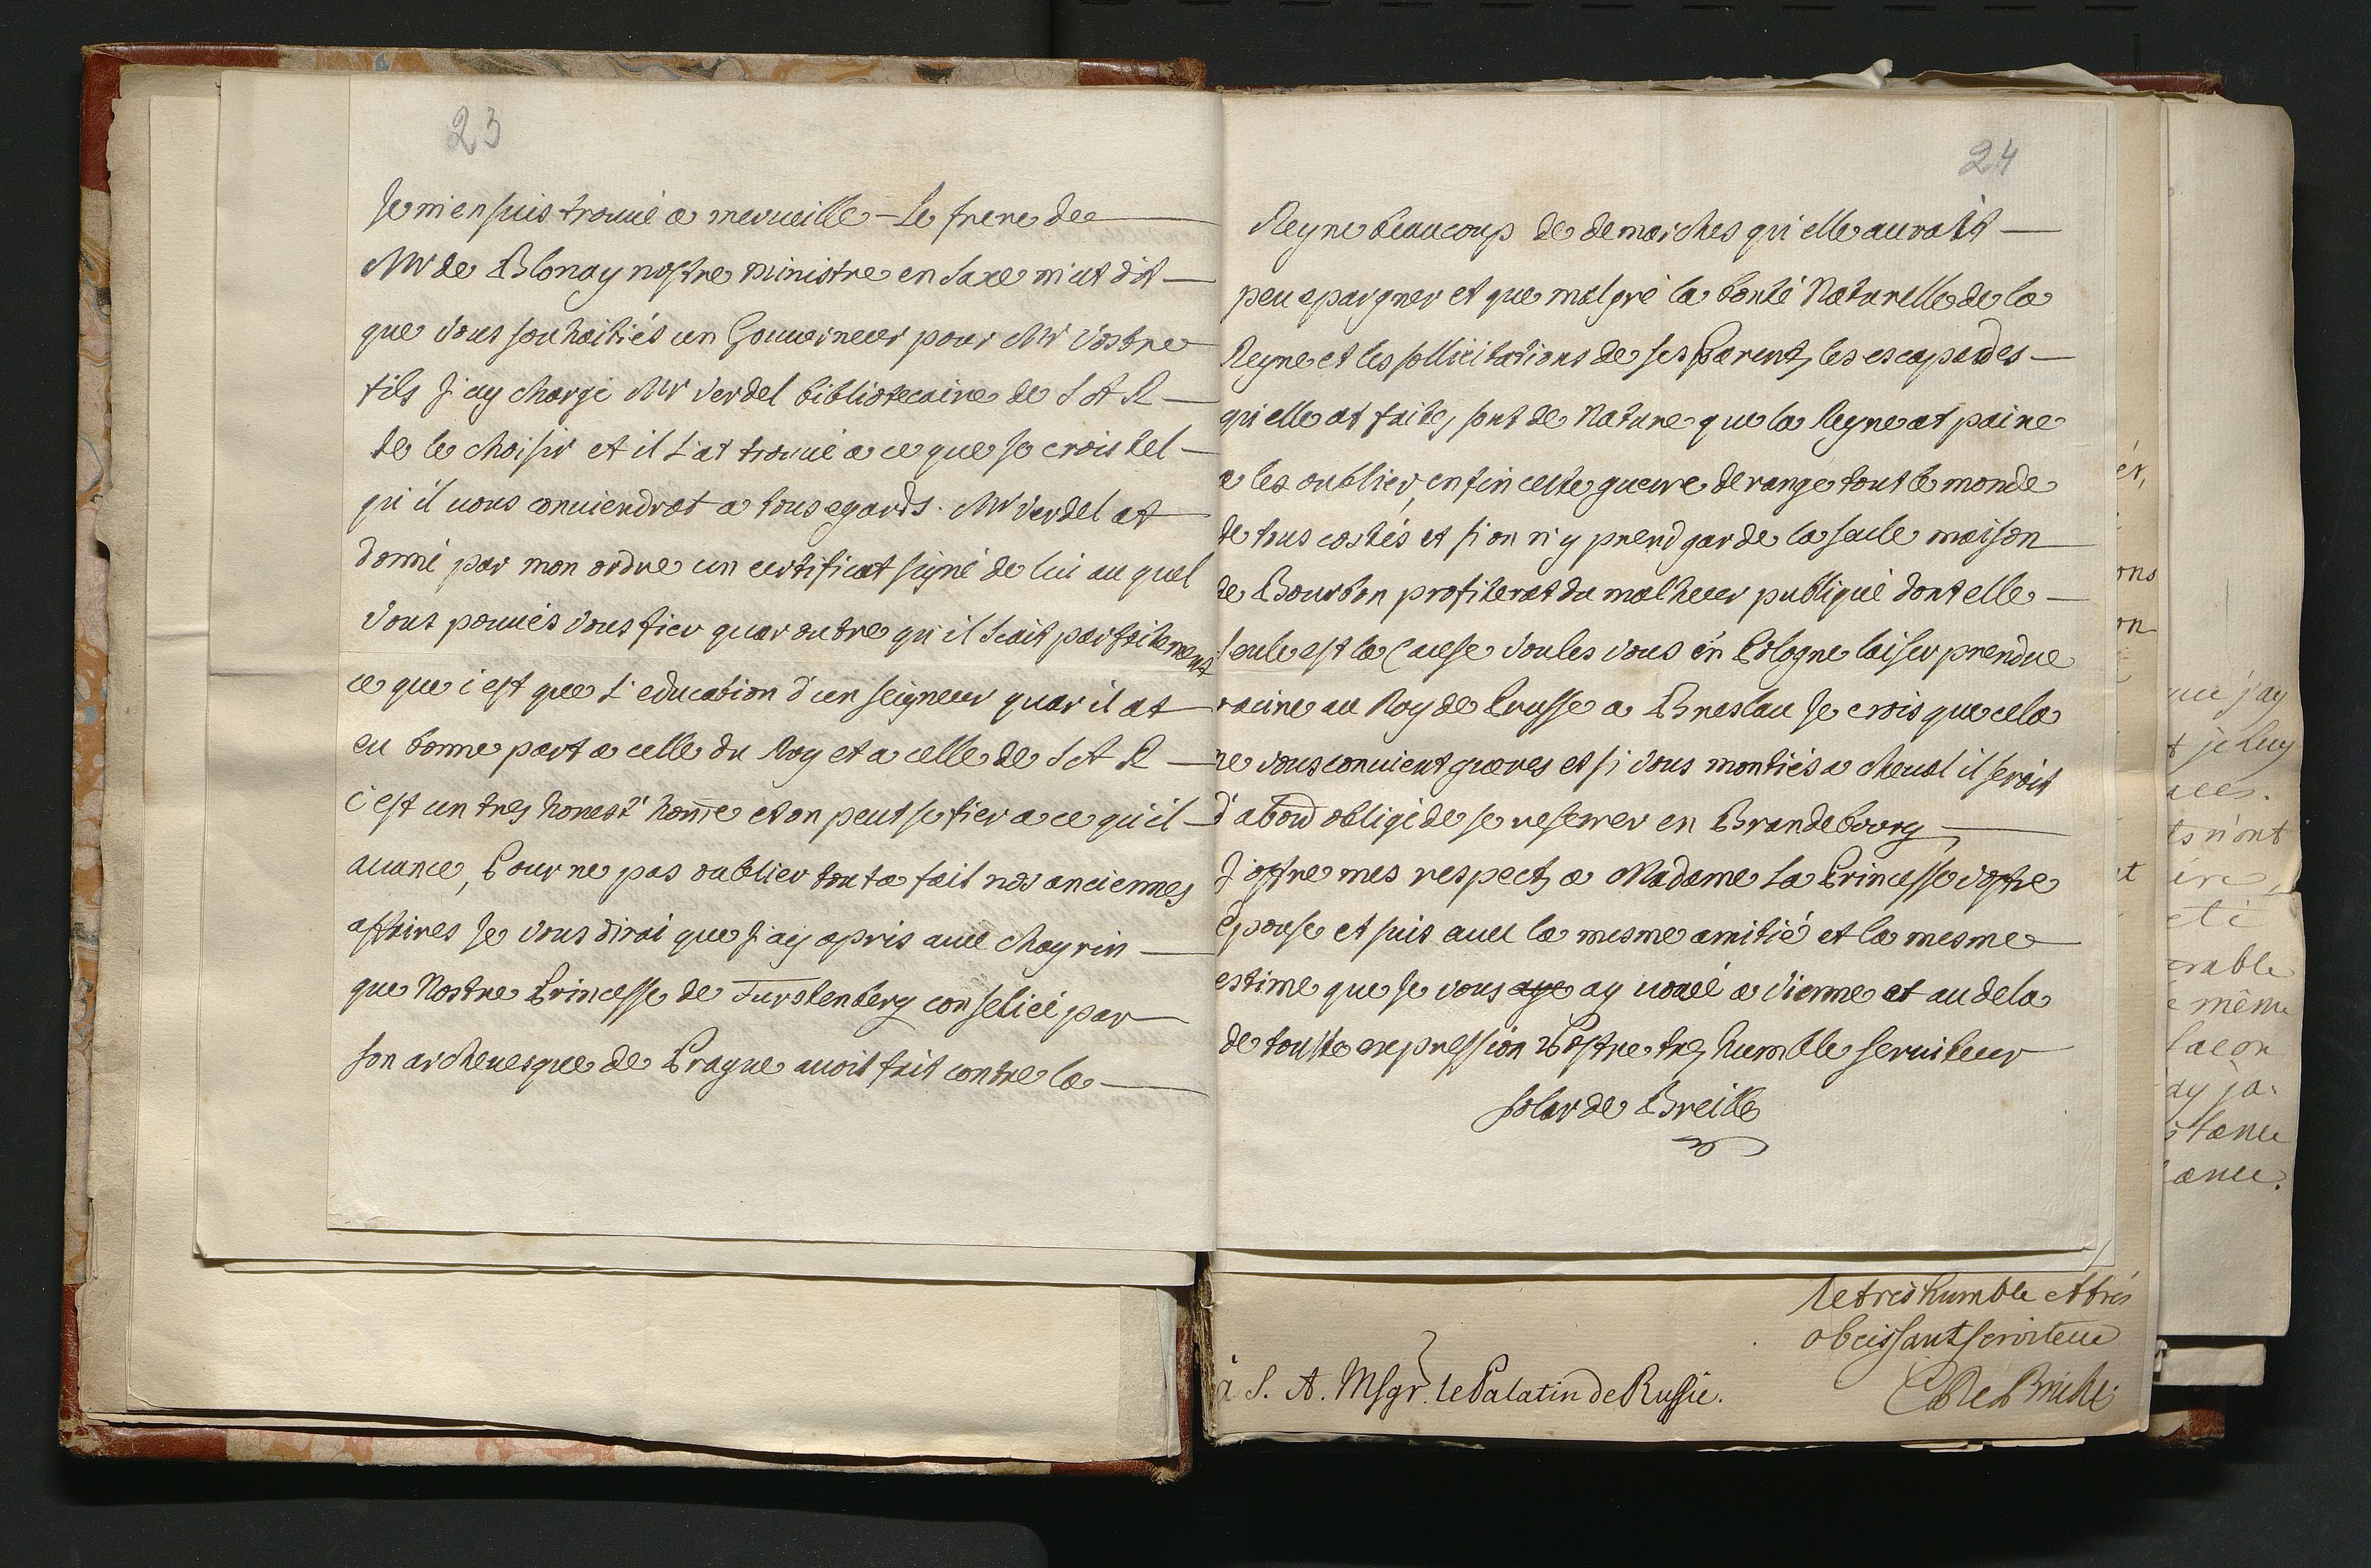 23
Je m'en suis trouué a merueille – Le frere de
Mr de Blonay nostre Ministre en Saxe m'at dit
que vous souhaitiés un Gouuerneur pour Mr Vostre
fils J'ay chargé Mr Verdel bibliotecaire de S A R
de le choisir et il l'at trouué a ce que Je crois tel
qu'il uous conuiendrat a tous egards. Mr Verdel at
donné par mon ordre un certificat signé de lui au quel
Vous pouués vous fier quar outre qu'il Scait parfaitement
ce que c'est que L'education d'un seigneur quar il at
eu bonne part a celle du Roy et a celle de S A R
c'est un tres honest' home et on peut se fier a ce qu'il
auance, Pour ne pas oublier tout a fait nos anciennes
affaires Je vous dirai que J'ay apris auec chagrin
que Nostre Princesse de Furstenberg conseliée par
son archeuesque de Prague auoit fait contre la
24
Reyne beaucoup de demarches qu'elle aurait
peu epargner et que malgré la bonté Naturelle de la
Reyne et les sollicitations de ses Parents, les escapades
qu'elle at faites, sont de Nature que la Reyne at paine
a les oublier, enfin cette guerre derange tout le monde
de tous costés et si on n'y prend garde la seule maison
de Bourbon profiterat du malheur publique dont elle
seule est la Cause Voules vous en Pologne laiser prendre
racine au Roy de Prusse a Breslau Je crois que cela
ne vous conuient gueres et si vous montiés a cheual il seroit
d'abord obligé de se reserrer en Brandebourg
J'offre mes respects a Madame La Princesse vostre
epouse et suis auec la mesme amitié et la mesme
estime que Je vous aye ay uoué a Vienne et au dela
de toutte expression Vostre tres humble seruiteur
Solar de Breille
le très humble et très
obeissant serviteur
à S. A. Msgr. le Palatin de Russie.
er,
ons
on
t
que j'ay
t je luy
ts n'ont
eté
erable
e même
facon
ay ja-
stance